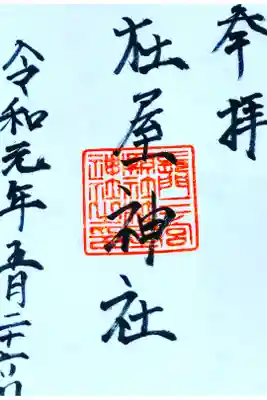 奉拝
杜屋神社
令和元年五月二十六日